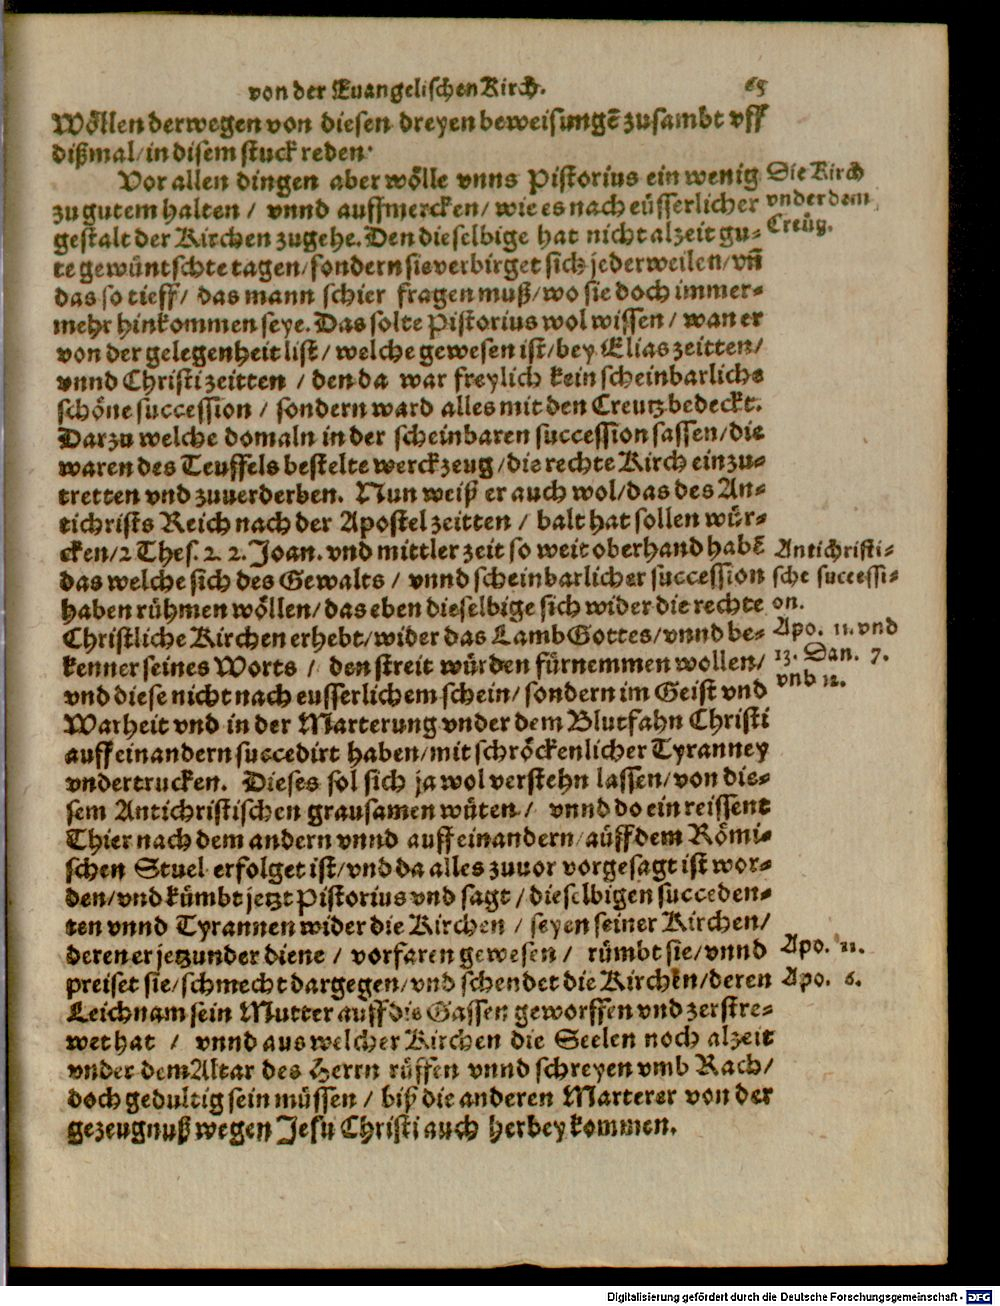 von der Euangelischen Kirch. 65
Wöllen derwegen von diesen dreyen beweisungē zusambt vff
dißmal/in disem stuck reden.
Vor allen dingen aber wölle vnns Pistorius ein wenig
zu gutem halten / vnnd auffmercken/ wie es nach eüsserlicher
gestalt der Kirchen zugehe. Den dieselbige hat nicht alzeit gu-
te gewüntschte tagen/sondern sie verbirget sich jederweilen/vn̄
das so tieff/ das mann schier fragen muß/wo sie doch immer-
mehr hinkommen seye. Das solte Pistorius wol wissen / wan er
von der gelegenheit list/ welche gewesen ist/bey Elias zeitten/
vnnd Christi zeitten / den da war freylich kein scheinbarliche
schöne succession / sondern ward alles mit den Creutz bedeckt.
Darzu welche domaln in der scheinbaren succession sassen/die
waren des Teuffels bestelte werckzeug/die rechte Kirch einzu-
tretten vnd zuuerderben. Nun weiß er auch wol/das des An-
tichrists Reich nach der Apostel zeitten / balt hat sollen wür-
cken/2 Thes. 2. 2. Joan. vnd mittler zeit so weit oberhand habē
das welche sich des Gewalts / vnnd scheinbarlicher succession
haben rühmen wöllen/das eben dieselbige sich wider die rechte
Christliche Kirchen erhebt/wider das Lamb Gottes/vnnd be-
kenner seines Worts / den streit würden fürnemmen wollen/
vnd diese nicht nach eusserlichem schein/sondern im Geist vnd
Warheit vnd in der Marterung vnder dem Blutfahn Christi
auff einandern succedirt haben/mit schröckenlicher Tyranney
vndertrucken. Dieses sol sich ja wol verstehn lassen/von die-
sem Antichristischen grausamen wüten / vnnd do ein reissent
Thier nach dem andern vnnd auff einandern/aüff dem Römi-
schen Stuel erfolget ist/vnd da alles zuuor vorgesagt ist wor-
den/vnd kümbt jetzt Pistorius vnd sagt / dieselbigen succeden-
ten vnnd Tyrannen wider die Kirchen / seyen seiner Kirchen/
deren er jetzunder diene / vorfaren gewesen / rümbt sie/vnnd
preiset sie/schmecht dargegen/vnd schendet die Kirchen/deren
Leichnam sein Mutter auff die Gassen geworffen vnd zerstre-
wet hat / vnnd aus welcher Kirchen die Seelen noch alzeit
vnder dem Altar des Herrn rüffen vnnd schreyen vmb Rach/
doch gedultig sein müssen / biß die anderen Marterer von der
gezeugnuß wegen Jesu Christi auch herbey kommen.
Die Kirch
vnder dem
Creütz.
Antichristi-
sche successi-
on.
Apo. 11. vnd
13. Dan. 7.
vnb 12.
Apo. 11.
Apo. 6.
Digitalisierung gefördert durch die Deutsche Forschungsgemeinschaft - DFG